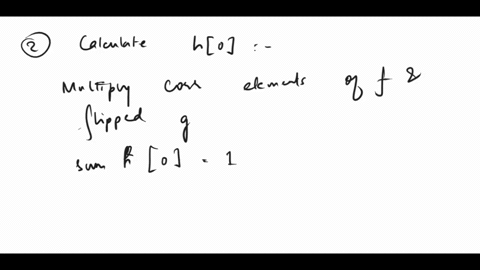 ② Calculate h[0] :-
Multiply corr elements of f &
flipped g
sum h[0] = 1